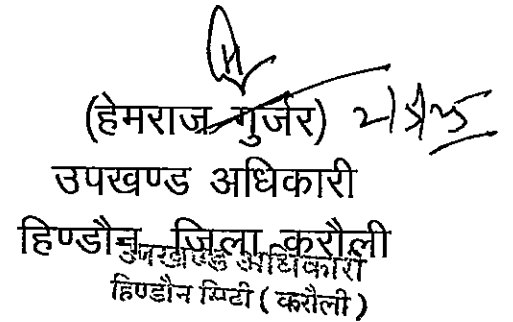 (हेमराज गुर्जर)
उपखण्ड अधिकारी
हिण्डौन जिला करौली
उपखण्ड अधिकारी
हिण्डौन सिटी (करौली)